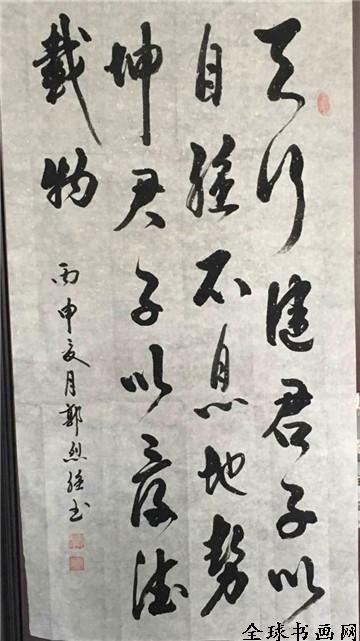 天行健君子以
自强不息地势
坤君子以厚德
载物
丙申夏月郭烈强书
全球书画网